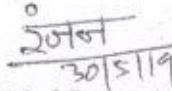 रंजन
30/5/19